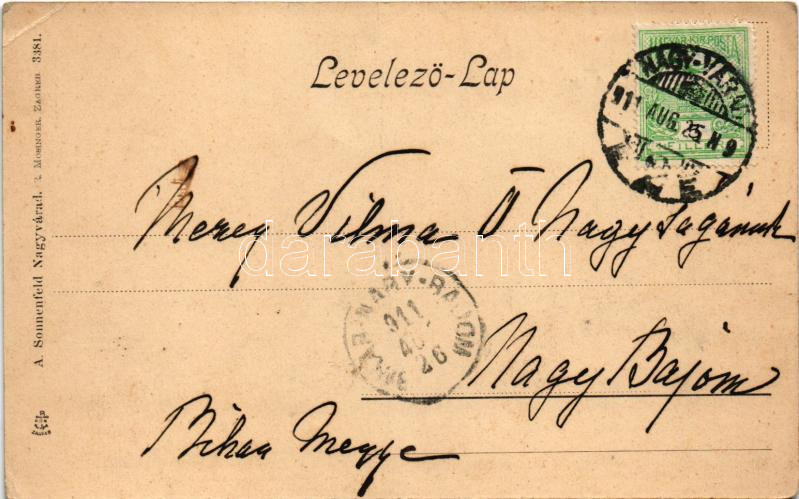 Levelező-Lap
MAGYAR KIR. POSTA
NAGY-VÁRAD
911 AUG. 25. N 9
Vilma Ő Nagysagának
darabanth
BIHAR-NAGY-BAJOM
911
AU
26
Nagy Bajom
Bihar Megye
A. Sonnenfeld Nagyvárad. R. MOSINGER, ZAGREB 3381.